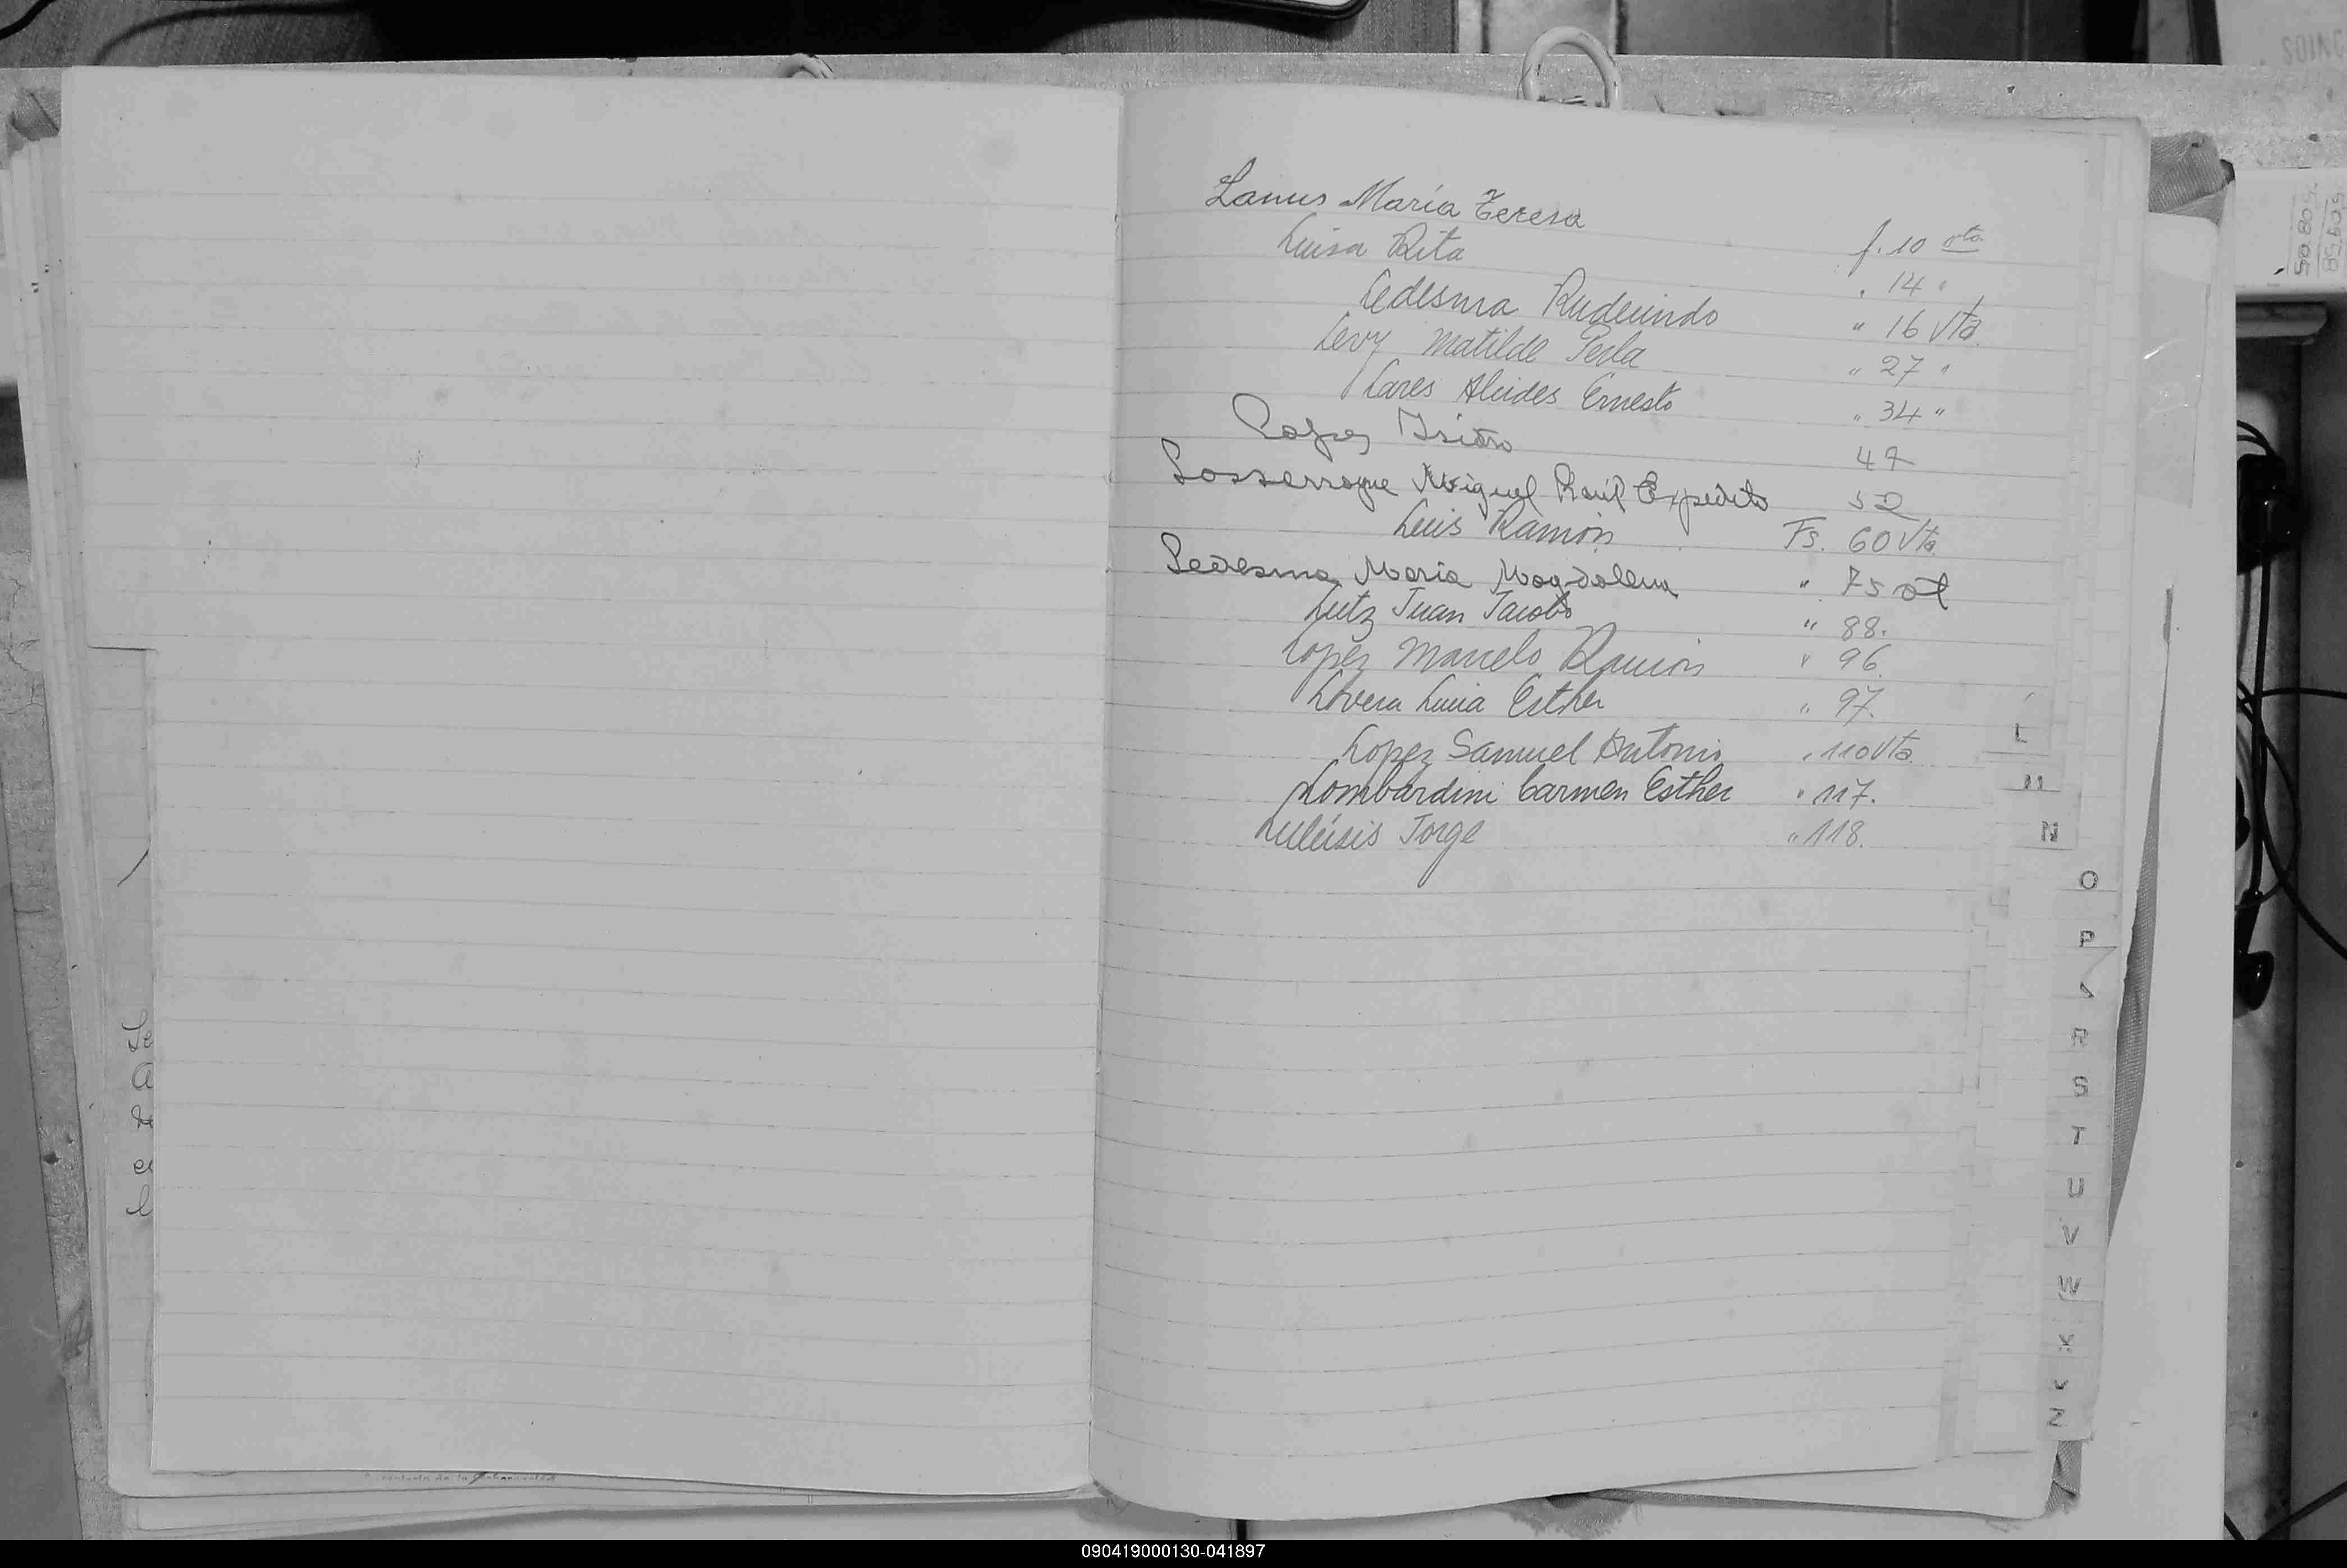 Lanus María Teresa f. 10 vta.
Luisa Rita " 14 "
Ledesma Rudecindo " 16 Vta.
Levy Matilde Perla " 27 "
Lares Alcides Ernesto " 34 "
Lopez Isidro 47
Miguel Raúl Expedito 52
Luis Ramón Fs. 60 Vta.
Ledesma Maria Magdalena " 75 vt
Lutz Juan Jacobo " 88.
Lopez Marcelo Ramón " 96.
Lovera Lucia Esther " 97.
Lopez Samuel Antonio " 110 Vta.
Lombardini Carmen Esther " 117.
Jorge " 118.
L
M
N
O
P
R
S
T
U
V
W
X
Z
090419000130-041897